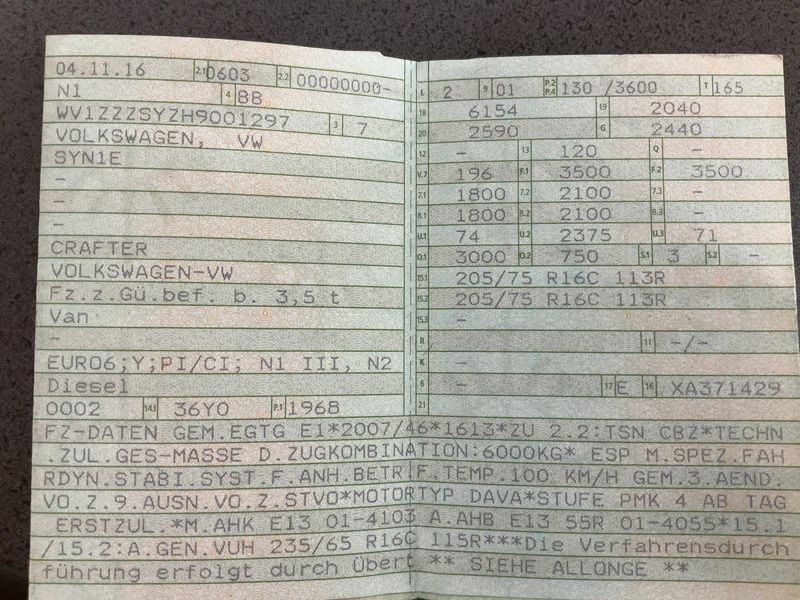 04.11.16 2.1 0603 2.2 00000000-
N1 4 BB
WV1ZZZSYZH9001297 3 7
VOLKSWAGEN, VW
SYN1E
-
-
-
CRAFTER
VOLKSWAGEN-VW
Fz.z.Gü.bef. b. 3,5 t
Van
-
EURO6;Y;PI/CI; N1 III, N2
Diesel
0002 14.1 36Y0 P.1 1968
L 2 9 01 P.2 P.4 130 /3600 T 165
18 6154 19 2040
20 2590 G 2440
12 - 13 120 Q -
V.7 196 F.1 3500 F.2 3500
7.1 1800 7.2 2100 7.3 -
8.1 1800 8.2 2100 8.3 -
U.1 74 U.2 2375 U.3 71
O.1 3000 O.2 750 S.1 3 S.2 -
15.1 205/75 R16C 113R
15.2 205/75 R16C 113R
15.3 -
R 11 -/-
K -
6 - 17 E 16 XA371429
21
FZ-DATEN GEM.EGTG E1*2007/46*1613*ZU 2.2:TSN CBZ*TECHN
.ZUL.GES-MASSE D.ZUGKOMBINATION:6000KG* ESP M.SPEZ.FAH
RDYN.STABI.SYST.F.ANH.BETR F.TEMP.100 KM/H GEM.3.AEND.
VO.Z.9.AUSN.VO.Z.STVO*MOTORTYP DAVA*STUFE PMK 4 AB TAG
ERSTZUL.*M.AHK E13 01-4103 A.AHB E13 55R 01-4055*15.1
/15.2:A.GEN.VUH 235/65 R16C 115R***Die Verfahrensdurch
führung erfolgt durch übert ** SIEHE ALLONGE **